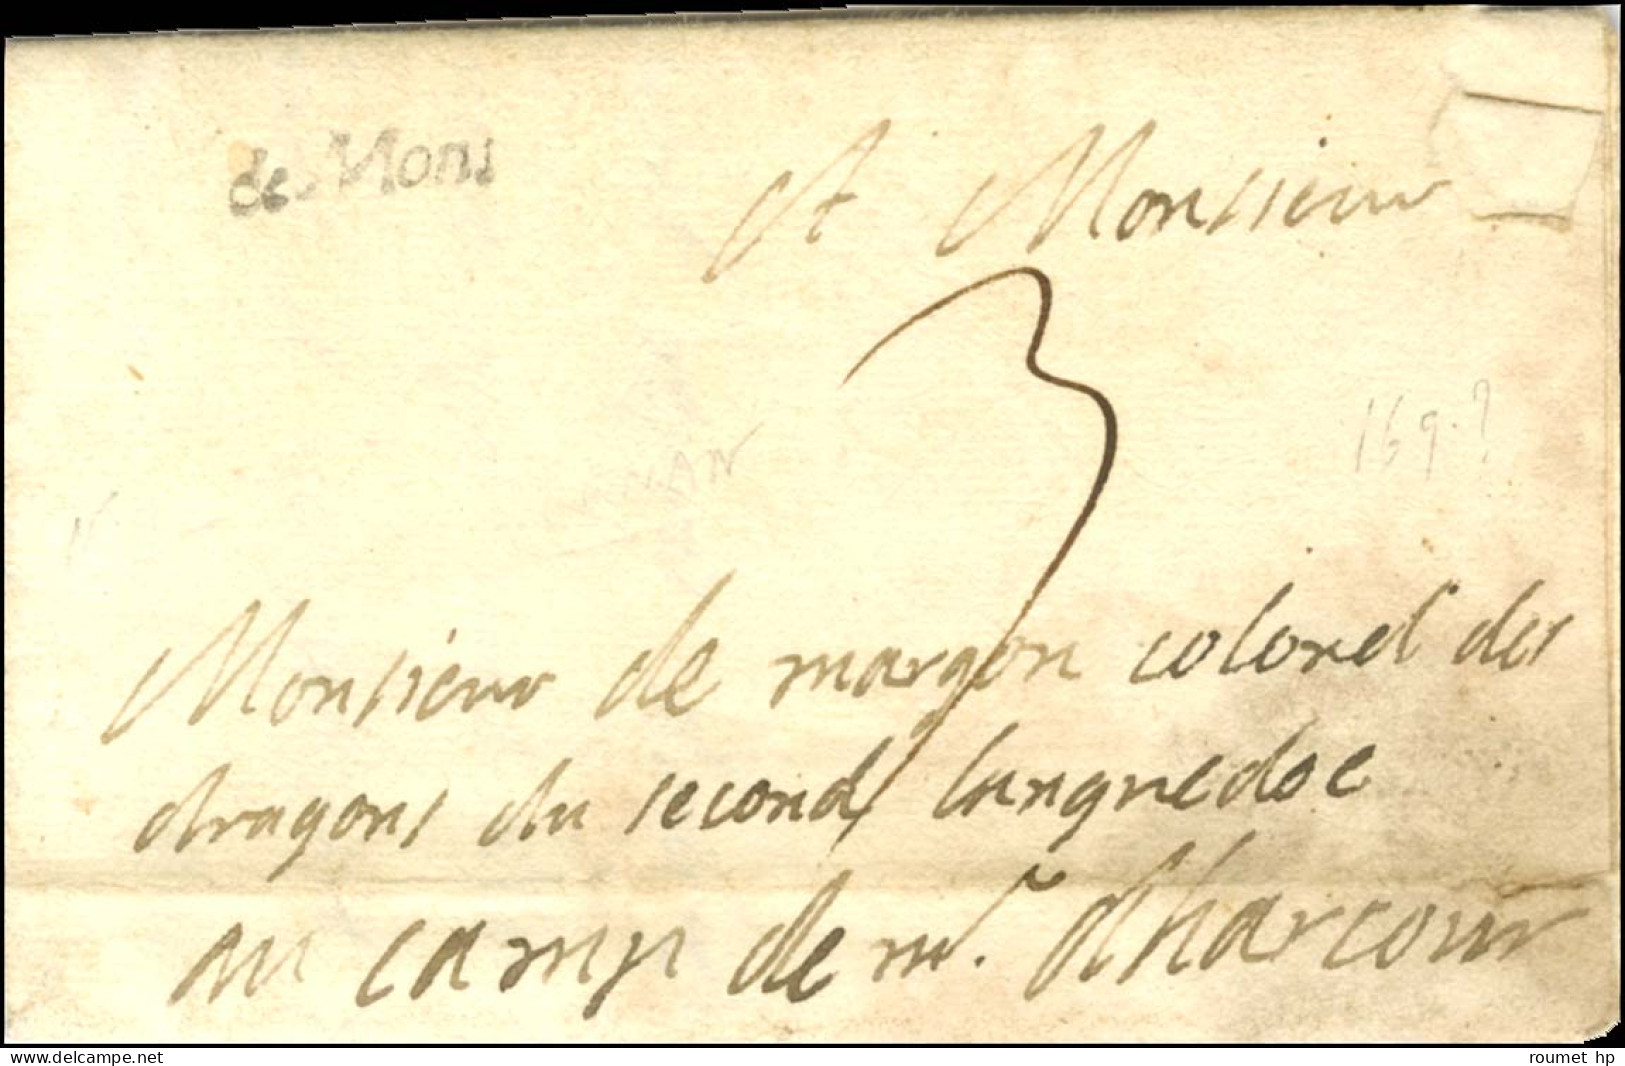 de Mons
A Monsieur
3
169.?
Monsieur de margon colonel des
dragons du second languedoc
au camp de mr. dharcour
www.delcampe.net
roumet hp